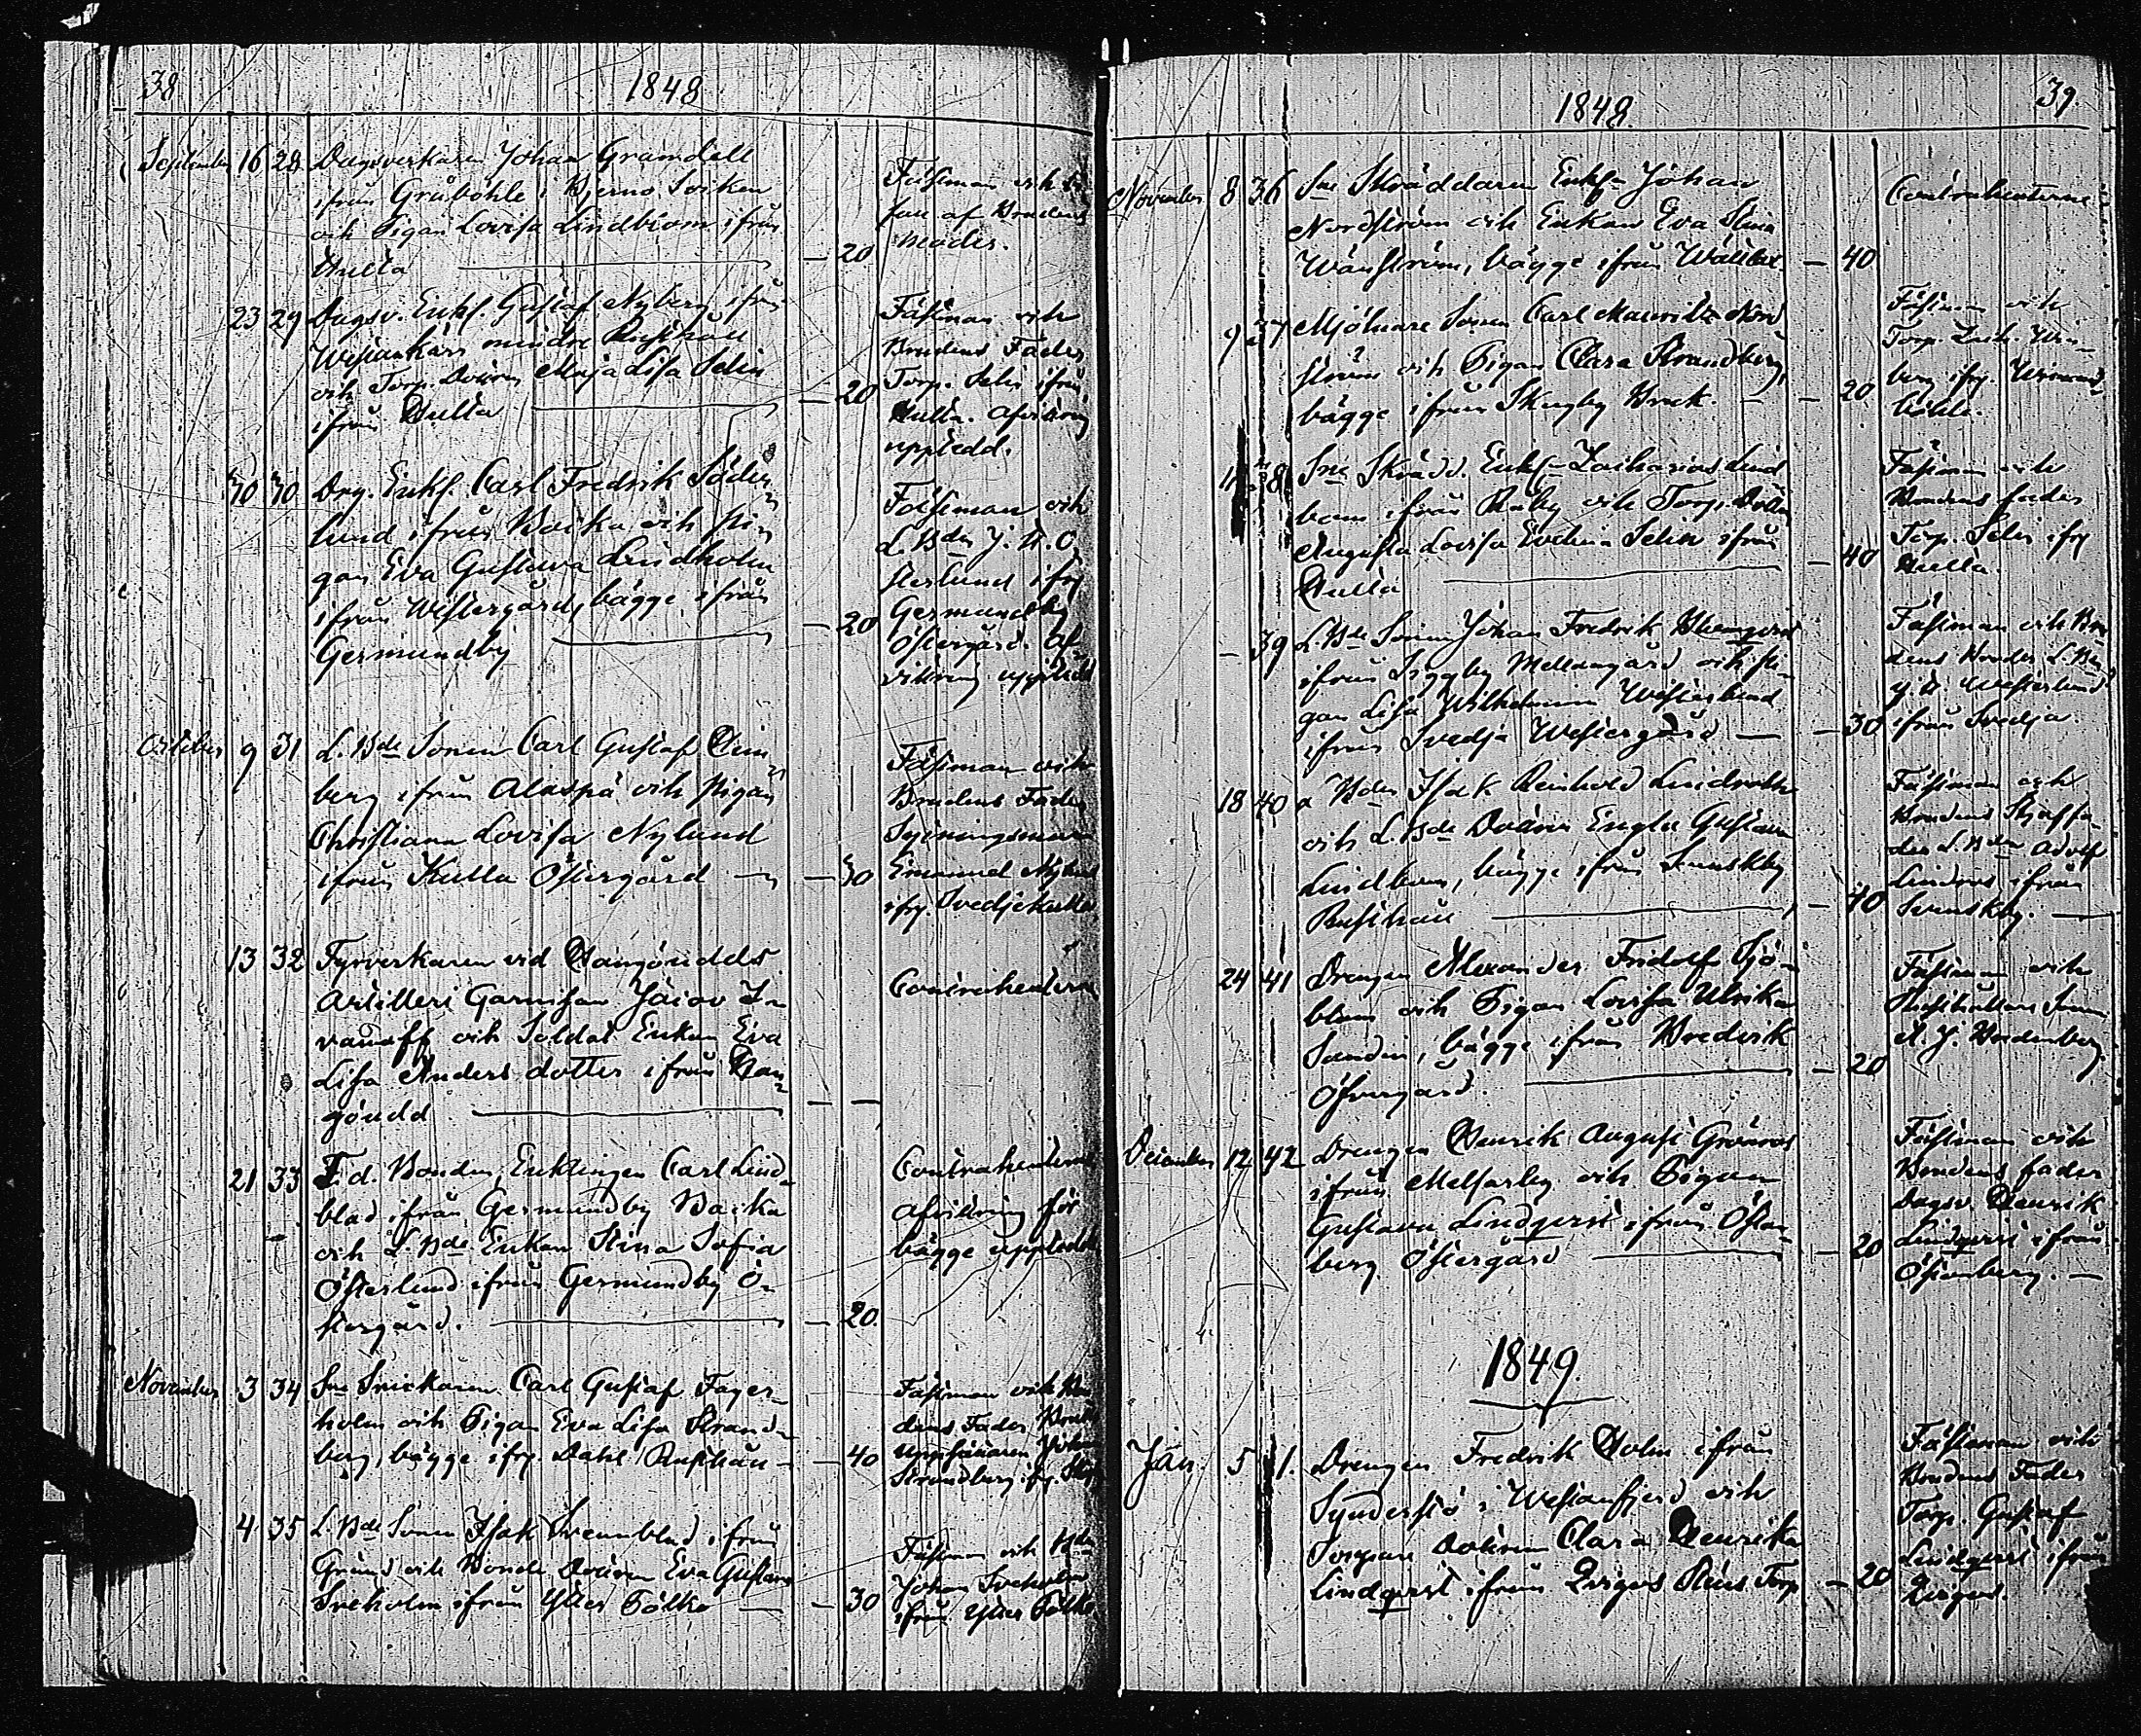 38
1848
September 16 28 Dagsverkaren Johan Gramdell
ifrån Gråböhle i Bjerno Socken
och Pigan Lovisa Lindblom ifrån
Hulta — 20
Fästman och
far af Brudens
Moder.
23 29 Dagsv. Enkl. Gustaf Nyberg ifrån
Westankärr mindre Rusthåll
och Torp. Dottren Maja Lisa Selin
ifrån Hulta — 20
Fästman och
Brudens Fader
Torp. Selin ifrån
Hulta. Afvittring
uppledd.
30 30 Drg. Enkl. Carl Fredrik Söder
lund ifrån Backa och Pi
gan Eva Gustava Lindholm
ifrån Westergård, bägge ifrån
Germundby — 20
Fästman och
L. Bden J. A. Ö
sterlund ifrg
Germundby
Östergård. Af
vittring uppledd
October 9 31 L. Bde Sonen Carl Gustaf
berg ifrån Alaspä och Pigan
Christiana Lovisa Nylund
ifrån Kulla Östergård — 30
Fästman och
Brudens Fader
Emanuel Nylund
ifrg. Svedjekulla
13 32 Fyrverkaren vid Hangöudds
Artilleri Garnison Jacov I
vanoff och Soldat Enkan Eva
Lisa Anders dotter ifrån Han
göudd — —
Contrahenterne
21 33 F. d. Bonden, Enklingen Carl Lind
blad ifrån Germundby Backa
och L. Bde Enkan Stina Sofia
Österlund ifrån Germundby Ö
stergård. — 20
Contrahenterne
Afvittring för
bägge uppledd
November 3 34 Sne Snickaren Carl Gustaf Fager
holm och Pigan Eva Lisa Strand
berg, bägge ifrg. Dahl Rusthåll — 40
Fästman och Bru
dens Fader Bruks
Strandberg ifr.
4 35 L. Bde Sonen Isak Svennblad ifrån
Gränd och Bonde Dottren Eva Gustava
Sveholm ifrån Ytter Pölko — 30
Fästman och Bden
Johan Sveholm
ifrån Ytter Pölko
1848.
39.
November 8 36 Sne Skräddaren Enkl. Johan
Nordström och Enkan Eva Stina
Wänström, bägge ifrån — 40
Contrahenterne
9 37 Mjölnare Sonen Carl Mauritz Nord
ström och Pigan Clara Strandberg,
bägge ifrån Skogby Bruk — 20
Fästman och
Torp. Zach. Win
berg ifrg.
böhle.
11 38 Sne Skrädd. Enkl. Zacharias Lind
bom ifrån Råby och Torp. Dottren
Augusta Lovisa Evelina Selin ifrån
Hulta — 40
Fästman och
Brudens fader
Torp. Selin ifrg
Hulta.
— 39 L. Bde Sonen Johan Fredrik Blomqvist
ifrån Isgyby Mellangård och Pi
gan Lisa Wilhelmina Westerlund
ifrån Svedja Westergård — 30
Fästman och Bru
dens Broder L. Bden
J. A. Westerlund
ifrån Svedja.
18 40 Bden Isak Reinhold Lindroth
och L. Bde Dottren Engla Gustava
Lindbom, bägge ifrån Svenskby
Rusthåll — 40
Fästman och
Brudens Stjuffa
der L. Bden Adolf
Linders ifrån
Svenskby. —
24 41 Drengen Alexander Fridolf Sjö
blom och Pigan Lovisa Ulrika
Sandin, bägge ifrån Brödtorp
Öfvergård. — 20
Fästman och
Rusthållare Sonen
A. J. Bredenberg.
December 12 42 Drengen Henrik August Grönroos
ifrån Melsarby och Pigan
Gustava Lindqvist ifrån Östan
berg Östergård — 20
Fästman och
Brudens fader
Dagsv. Henrik
Lindqvist ifrån
Östanberg. —
1849.
Jan. 5 1. Drengen Fredrik Holm ifrån
Syndersjö i Westanfjerd och
Torpare Dottren Clara Henrika
Lindqvist ifrån Torp — 20
Fästman och
Brudens Fader
Torp. Gustaf
Lindqvist ifrån